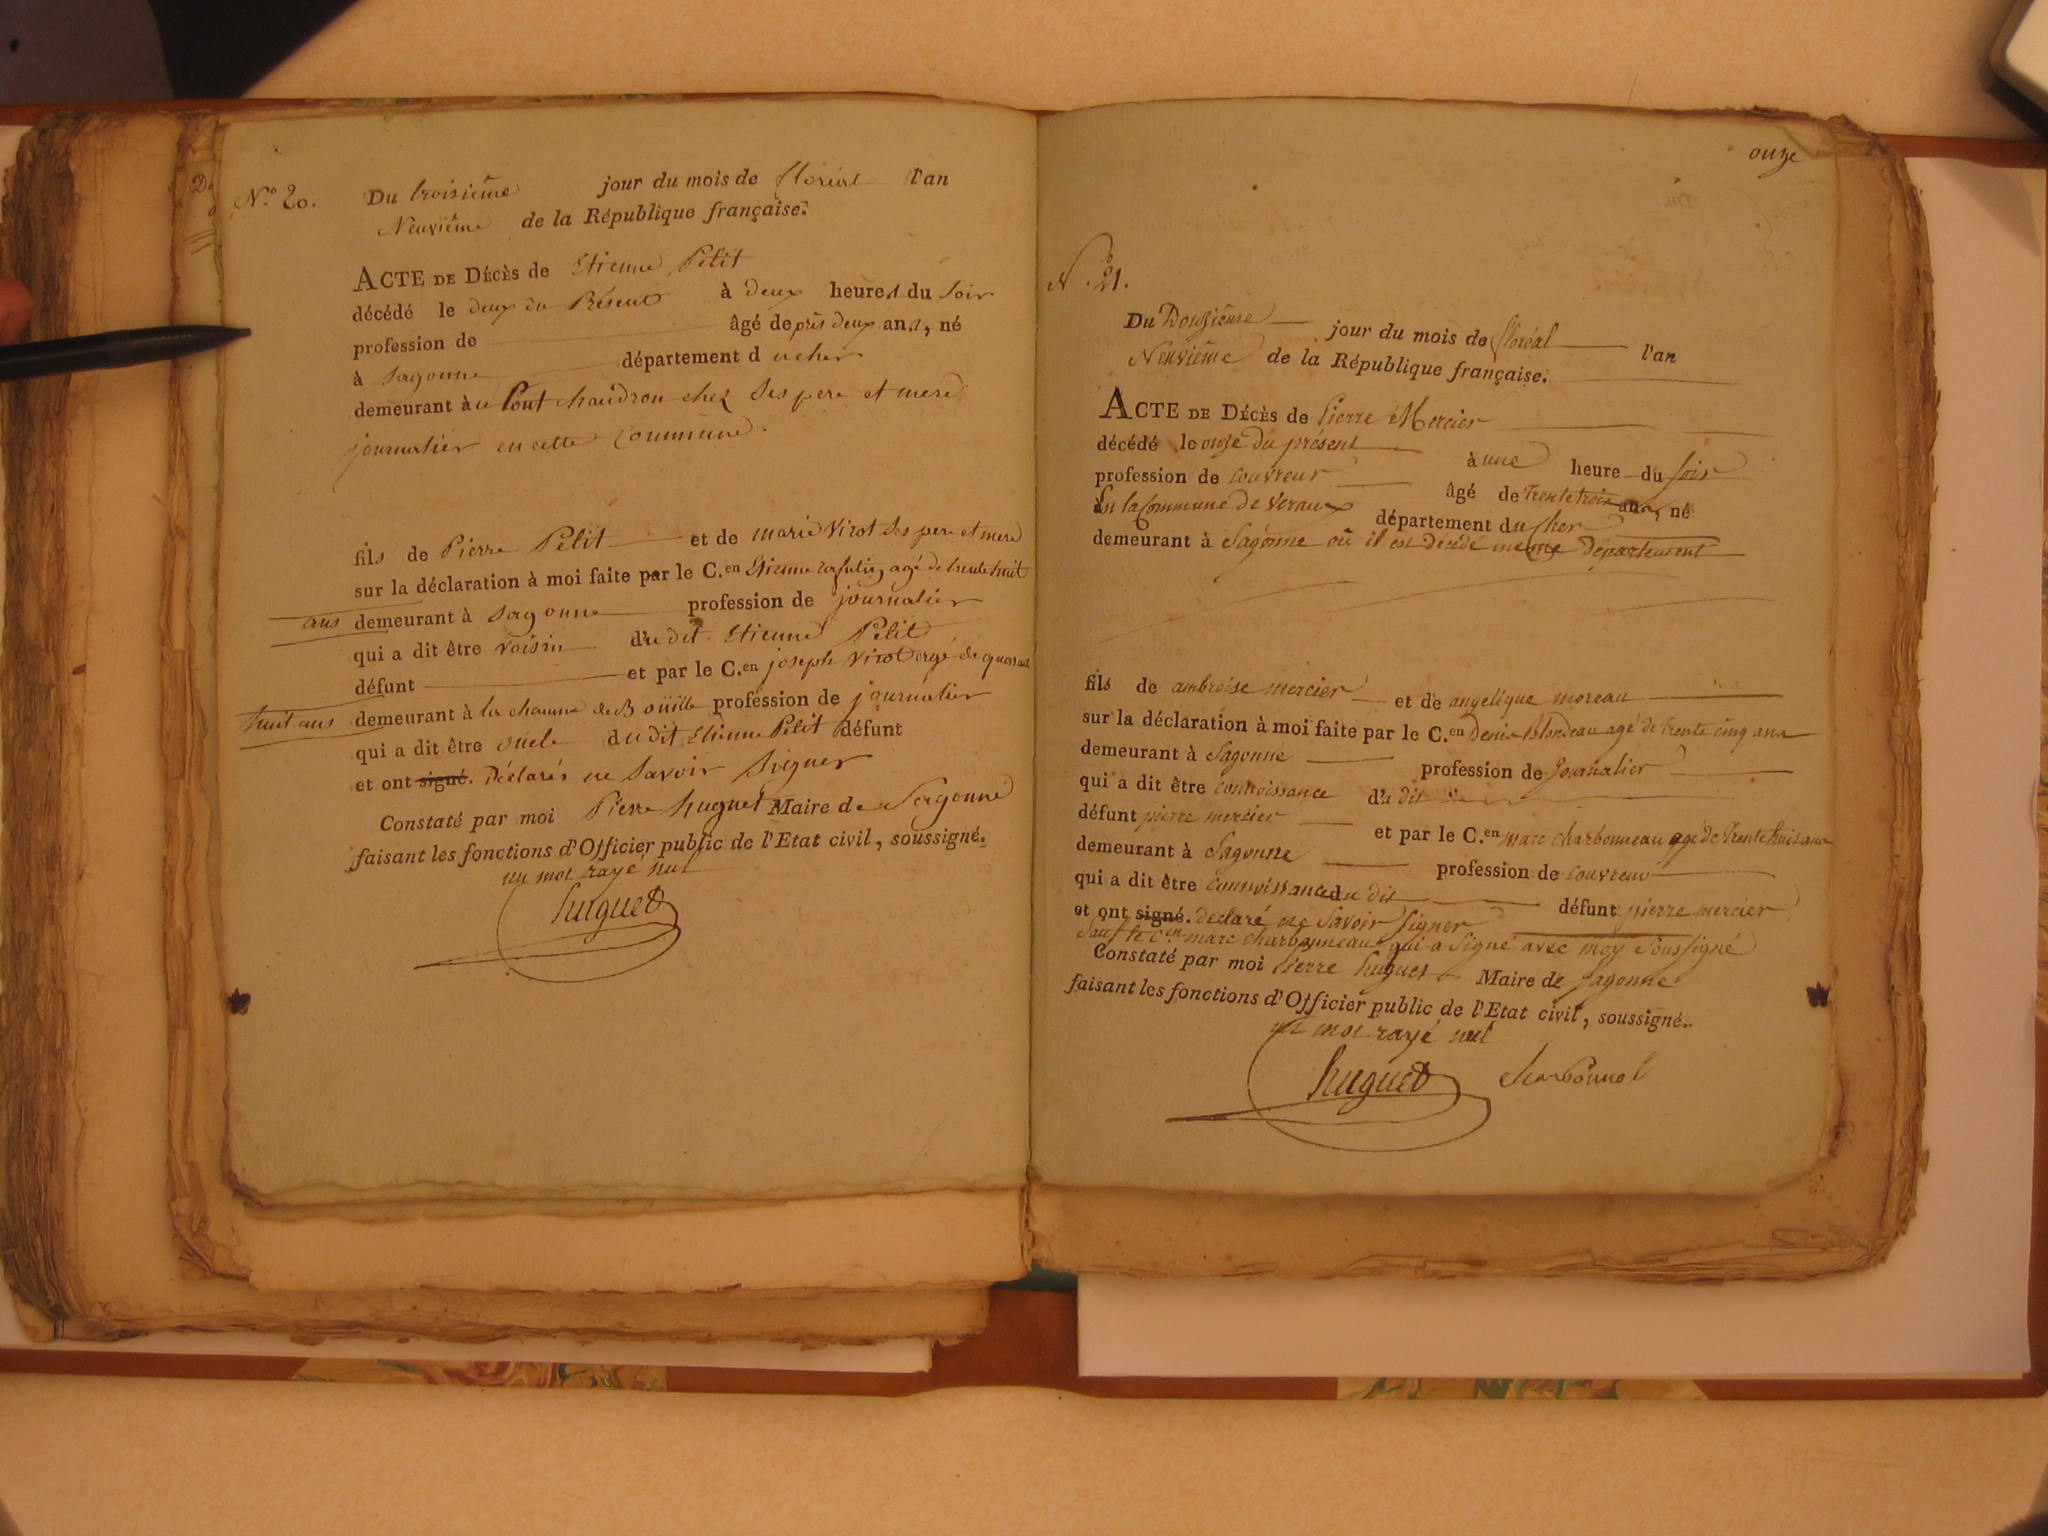 N.o 20. Du troisième jour du mois de floréal l'an
Neuvième de la République française.
ACTE DE DÉCÈS de Etienne Petit
décédé le deux du Présent à deux heures du soir
profession de âgé de près deux ans, né
à Sagonne département du cher
demeurant à u Pont chaudron chez ses pere et mere
journalier en cette Commune.
fils de Pierre Petit et de marie Virot ses pere et mere
sur la déclaration à moi faite par le C.en Etienne agé de trente huit
ans demeurant à Sagonne profession de journalier
qui a dit être voisin du dit Etienne Petit
défunt et par le C.en joseph Virot agé de quarante
huit ans demeurant à la chaume de Boüille profession de journalier
qui a dit être oncle du dit Etienne Petit défunt
et ont signé. Déclarés ne Savoir Signer
Constaté par moi Pierre huguet Maire de Sagonne
faisant les fonctions d'Officier public de l'Etat civil, soussigné.
un mot rayé nul
huguet
onze
N.o 21.
Du Douzieme jour du mois de floréal l'an
Neuvième de la République française.
ACTE DE DÉCÈS de Pierre Mercier
décédé le onze du présent à une heure du soir
profession de couvreur âgé de trente trois ans, né
En la Commune de Veraux département du Cher
demeurant à Sagonne où il est décédé meme département
fils de ambroise mercier et de angelique moreau
sur la déclaration à moi faite par le C.en Denis Blondeau agé de trente cinq ans
demeurant à Sagonne profession de Journalier
qui a dit être connoissance du dit
défunt pierre mercier et par le C.en marc charbonneau agé de trente huit ans
demeurant à Sagonne profession de couvreur
qui a dit être connoissance du dit défunt pierre mercier
et ont signé. declaré ne Savoir Signer
Sauf le c.en marc charbonneau qui a Signé avec moy Soussigné
Constaté par moi Pierre huguet Maire de Sagonne
faisant les fonctions d'Officier public de l'Etat civil, soussigné.
un mot rayé nul
huguet charbonnel